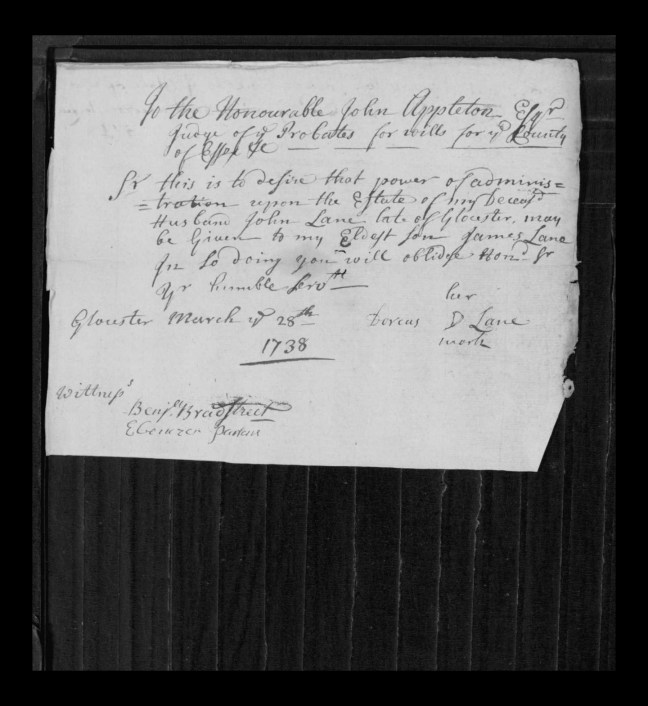 To the Honourable John Appleton Esqr
Judge of ye Probates for wills for ye County
of Essex &c
Sr this is to desire that power of adminis=
=tration upon the Estate of my Deceasd
Husband John Lane late of Glocester, may
be Given to my Eldest son James Lane
In so doing you will oblidge Hond Sr
Yr humble Servtt
her
Glocester March ye 28th Dorcas D Lane
1738 mark
Wittness
Benja Bradstreet
Ebenezer Parsons